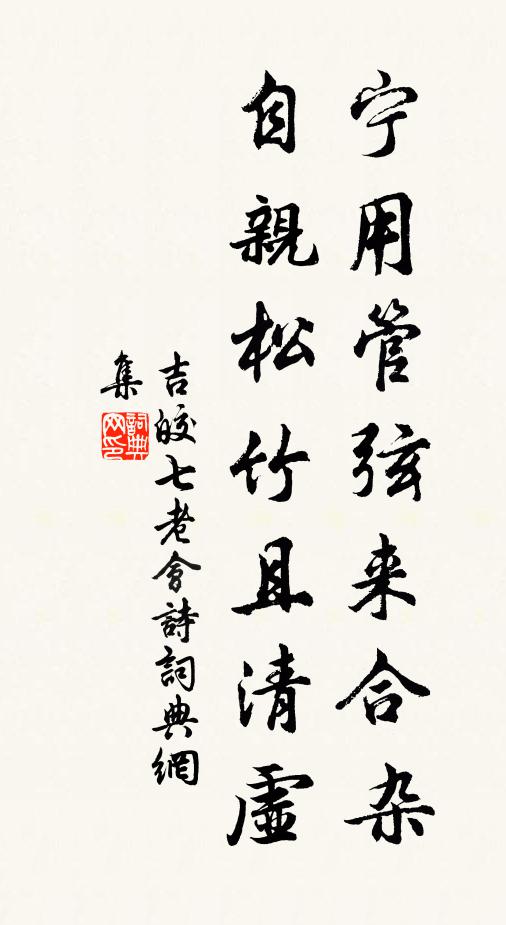 宁用管弦来合杂
自親松竹且清虛
吉皎七老會詩詞典網
集
詞典網印